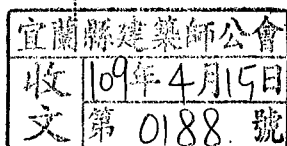 宜蘭縣建築師公會
收文 109年4月15日
第 0188 號